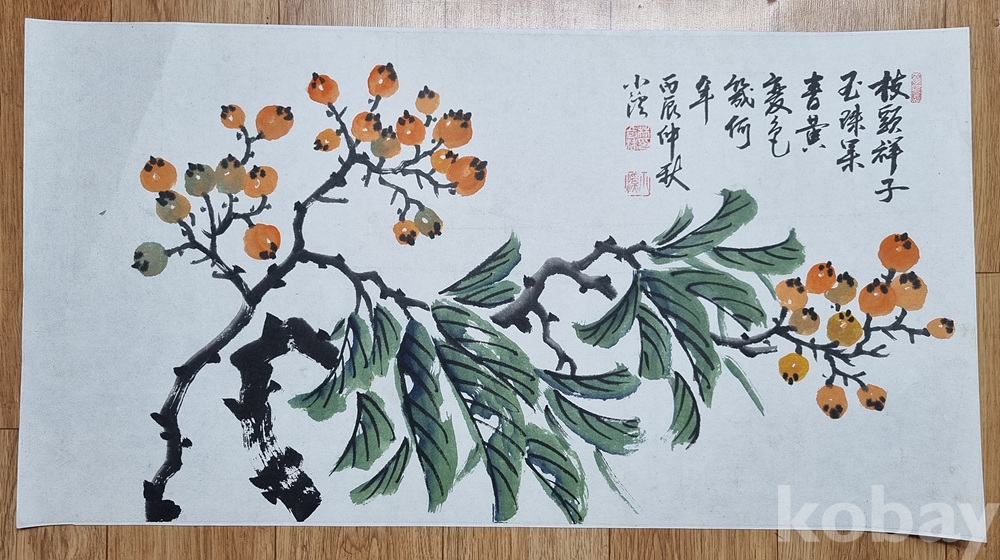 枝頭祥子
玉珠累
青黃
變色
幾何
年
丙辰仲秋
kobay